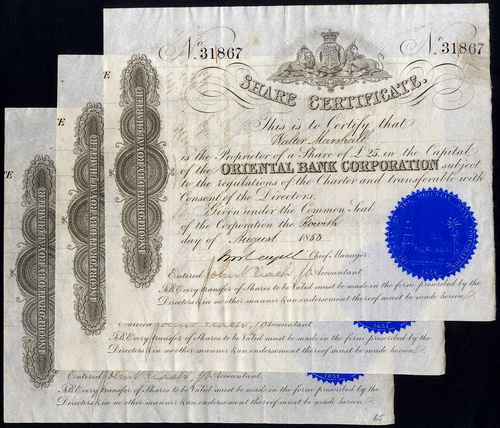 No 31867 No 31867
SHARE CERTIFICATE.
This is to Certify that
Walter Marshall
is the Proprietor of a Share of £25. in the Capital
of the ORIENTAL BANK CORPORATION subject
to the regulations of the Charter and transferable with
Consent of the Directors.
Given under the Common Seal
of the Corporation the Fourth
day of August 1853
Chief Manager.
Entered Accountant.
N.B. Every transfer of Shares to be Valid must be made in the form prescribed by the
Directors & in no other manner & an endorsement thereof must be made hereon.
INCORPORATED BY ROYAL CHARTER
TE
INCORPORATED BY ROYAL CHARTER
Entered Accountant.
N.B. Every transfer of Shares to be Valid must be made in the form prescribed by the
Directors & in no other manner & an endorsement thereof must be made hereon.
1851
TE
INCORPORATED BY ROYAL CHARTER
Entered Accountant.
N.B. Every transfer of Shares to be Valid must be made in the form prescribed by the
Directors & in no other manner & an endorsement thereof must be made hereon.
1851
65